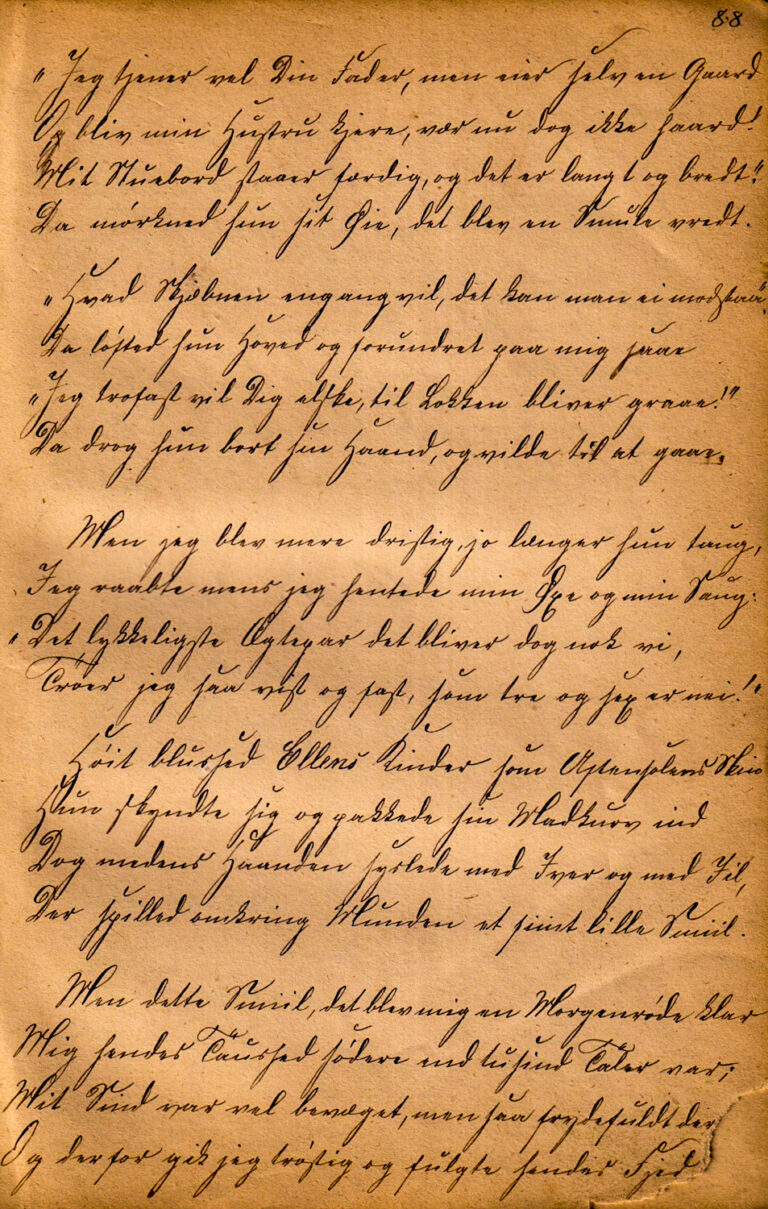 88
"Jeg tjener vel Din Fader, men eier selv en Gaard
Og bliv min Hustru kjere, vær nu dog ikke haard!
Mit Stuebord staaer færdig, og det er langt og bredt."
Da mörkned hun sit Øie, det blev en Smule vredt.
"Hvad Skjæbnen engang vil, det kan man ei modstaa"
Da löfted hun Hoved og forundret paa mig saae
"Jeg trofast vil Dig elske, til Lokken bliver graae!"
Da drog hun bort sin Haand, og vilde til at gaae.
Men jeg blev mere dristig, jo længer hun taug,
Jeg raabte mens jeg hentede min Øxe og min Saug:
"Det lykkeligste Ægtepar det bliver dog nok vi,
Tröer jeg saa vist og fast, som tre og sex er nei!"
Höit blussed Ellens Kinder som Aftensolens Skin
Hun skyndte sig og pakkede sin Madkurv ind
Dog medens Haanden syslede med Iver og med Iil,
Der spilled omkring Munden et fiint lille Smiil.
Men dette Smiil, det blev mig en Morgenröde klar
Mig hendes Taushed södere end tusind Taler var;
Mit Sind var vel bevæget, men saa frydefuldt der
Og derfor gik jeg tröstig og fulgte hendes Fjed